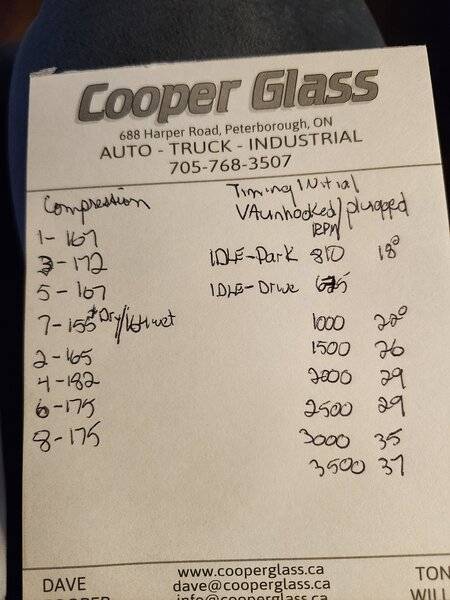 Cooper Glass
688 Harper Road, Peterborough, ON
AUTO - TRUCK - INDUSTRIAL
705-768-3507
Compression
1-167
3-172
5-167
7-155 * Dry/164 wet
2-165
4-182
6-175
8-175
Timing Initial
VA unhooked/plugged
RPM
IDLE-Park 810 18°
IDLE-Drive 675
1000 22°
1500 26
2000 29
2500 29
3000 35
3500 37
www.cooperglass.ca
DAVE
dave@cooperglass.ca
TON
COOPER
info@cooperglass.ca
WILL